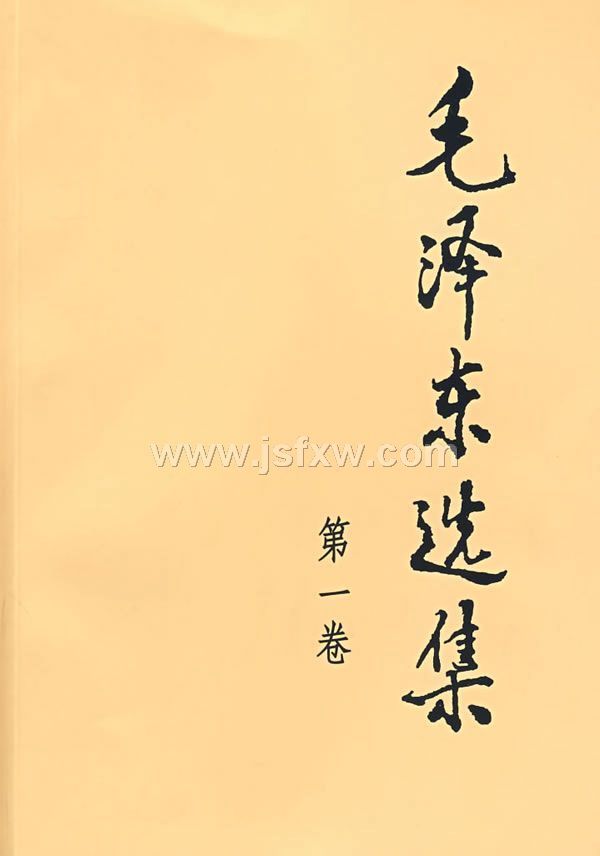 毛泽东选集
第一卷
www.jsfxw.com